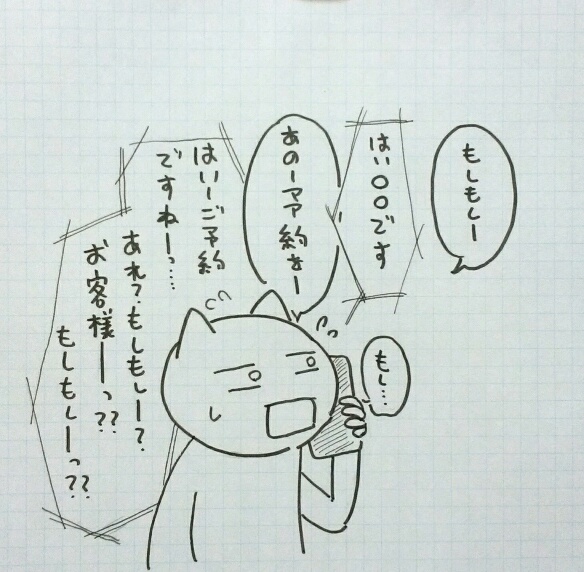 もしもしー
はい○○です
あのー予約をー
はいーご予約
ですねーっ……
あれ?もしもしー?
お客様ーーっ??
もしもしーーっ??
もし…